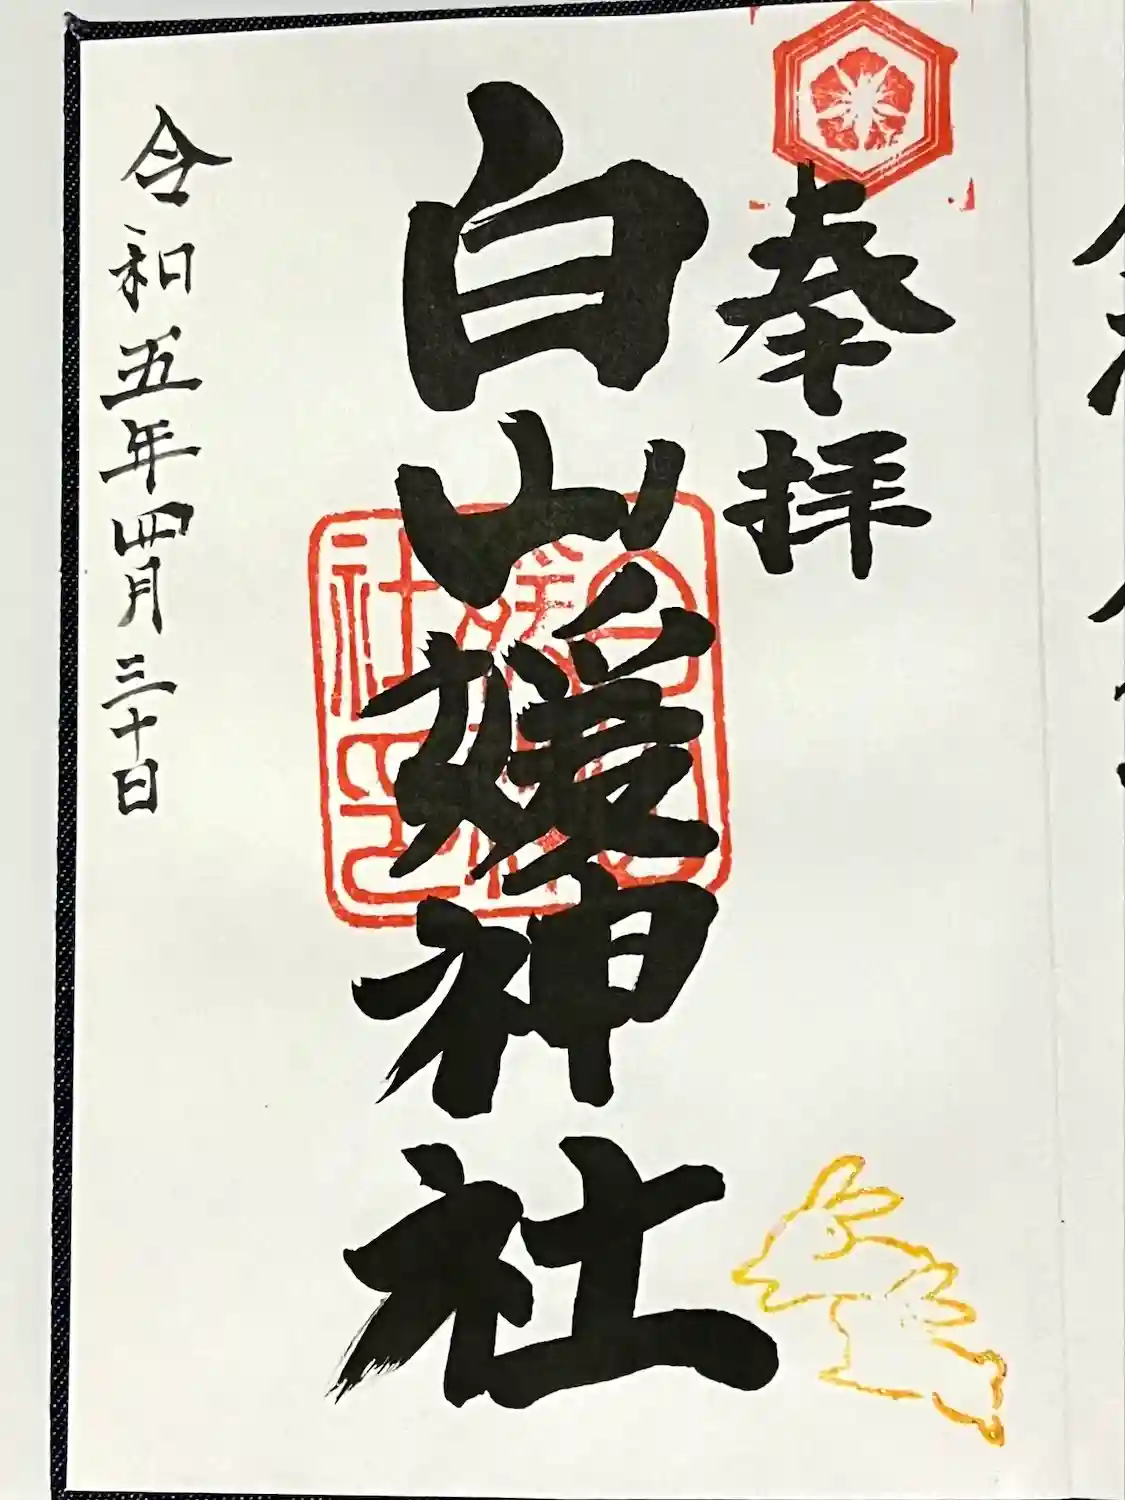 奉拝
白山媛神社
令和五年四月三十日